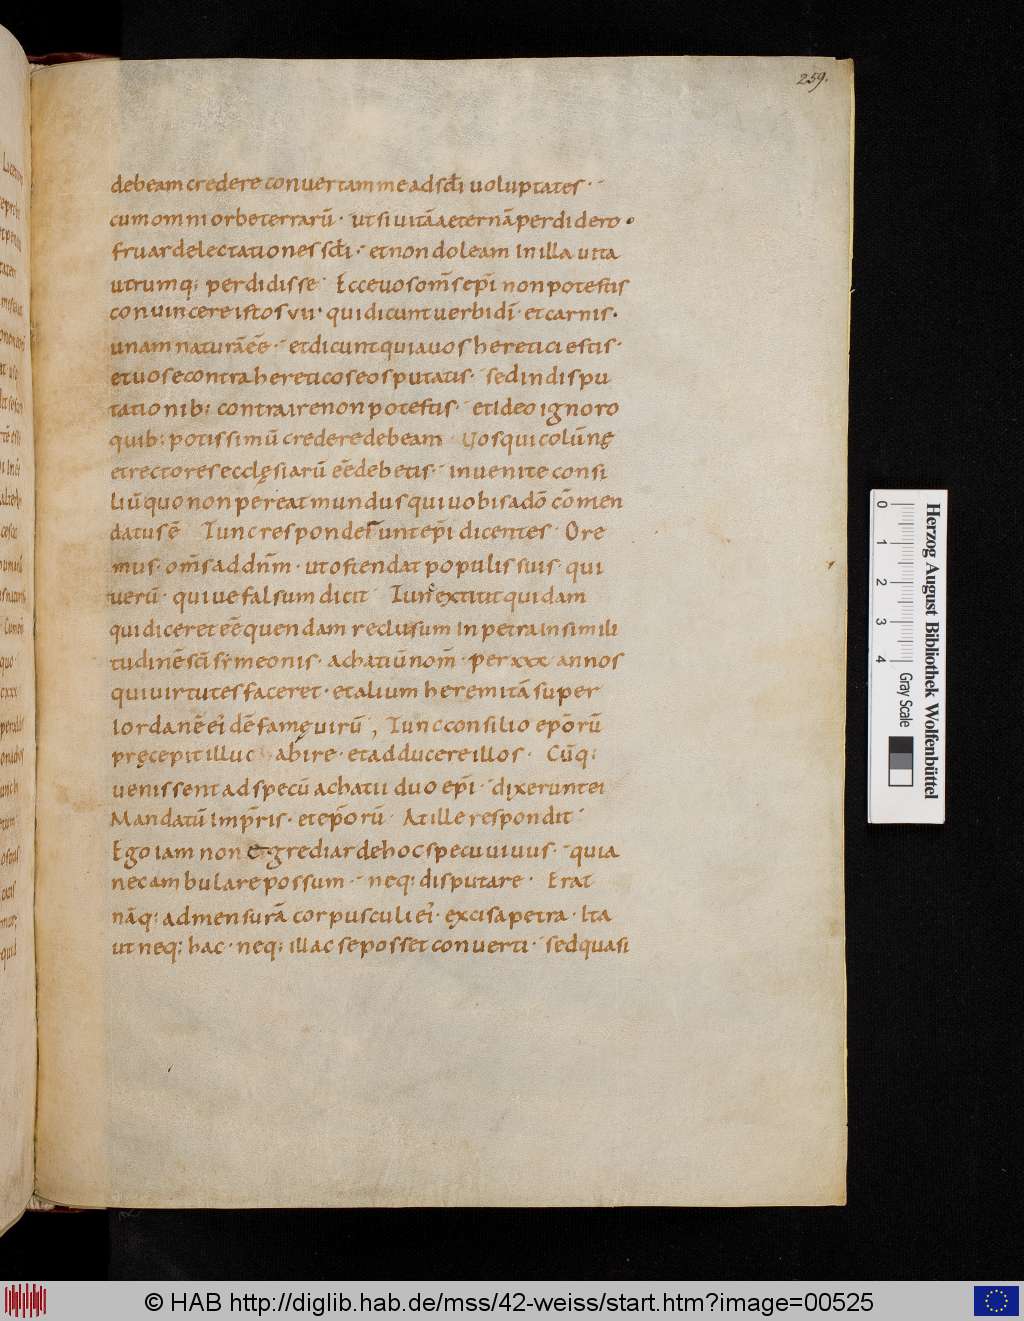 259.
debeam credere conuertam me ad scłi uoluptates·
cum omni orbe terrarū· ut si uitā aeternā perdidero·
fruar delectationes scłi· et non doleam in illa uita
utrumq; perdidisse· Ecce uos om̄s ep̄i non potestis
conuincere istos vii· qui dicunt uerbi dī· et carnis·
unam naturā eē· et dicunt quia uos heretici estis·
et uos econtra hereticos eos putatis· sed in dispu
tationib; contraire non potestis· et ideo ignoro
quib; potissimū credere debeam Vos qui colūnę
et rectores ecclęsiarū eē debetis· inuenite consi
liū quo non pereat mundus qui uobis a dō cōmen
datus ē Tunc responderunt ep̄i dicentes· Ore
mus· om̄s ad dn̄m· ut ostendat populis suis· qui
uerū· qui ue falsum dicit Tunc extitit quidam
qui diceret eē quendam reclusum in petra in simili
tudinē sc̄i symeonis· achatiū nom̄· per xxx annos
qui uirtutes faceret· et alium heremitā super
Iordanē ei dē famę uirū, Tunc consilio ep̄orū
pręcepit illuc abire· et adducere illos· Cūq;
uenissent ad specū achatii duo ep̄i· dixerunt ei
Mandatū imp̄ris· et ep̄orū· At ille respondit
Ego iam non egrediar de hoc specu uiuus· quia
nec ambulare possum· neq; disputare· Erat
nāq; ad mensurā corpusculi ei· excisa petra· Ita
ut neq; hac· neq; illac se posset conuerti· sed quasi
0 1 2 3 4
Gray Scale
Herzog August Bibliothek Wolfenbüttel
© HAB http://diglib.hab.de/mss/42-weiss/start.htm?image=00525